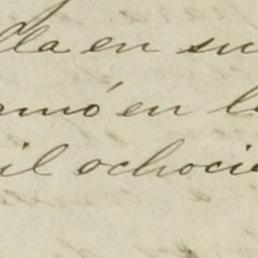 da en su
amó en l
il ochocie